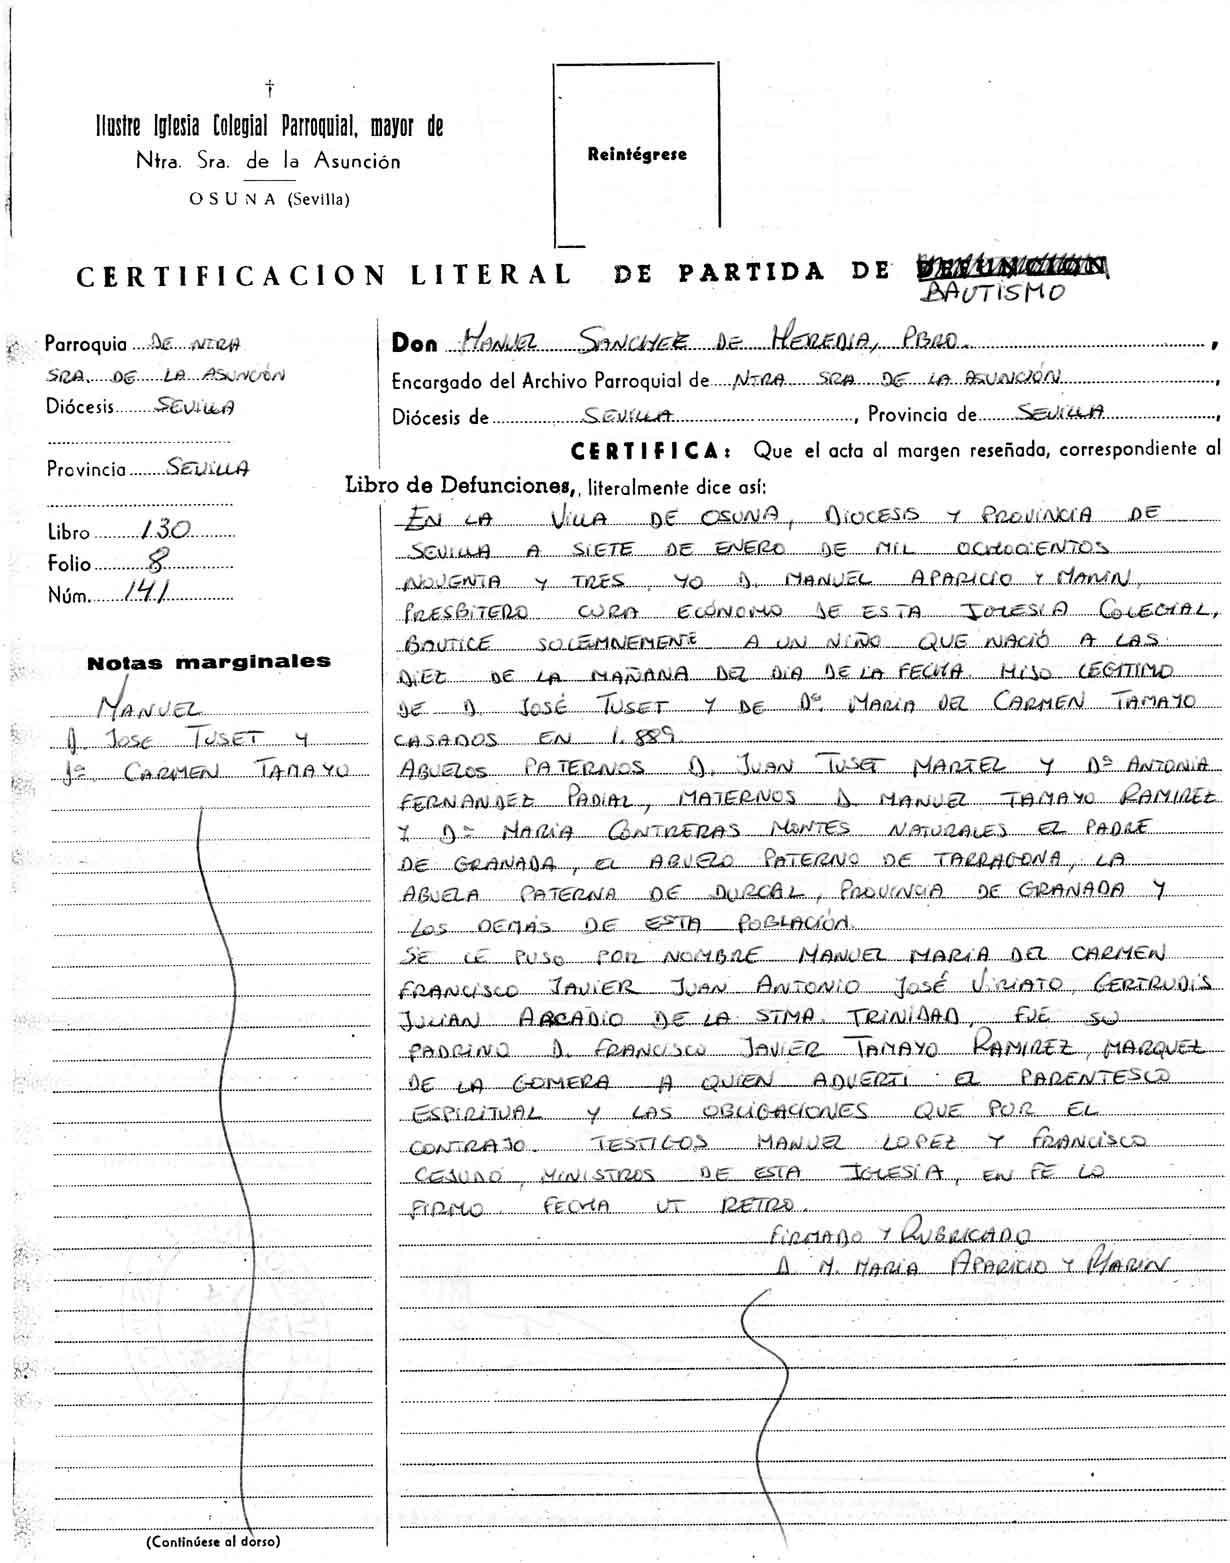 †
Ilustre Iglesia Colegial Parroquial, mayor de
Ntra. Sra. de la Asunción
OSUNA (Sevilla)
Reintégrese
CERTIFICACION LITERAL DE PARTIDA DE DEFUNCION
BAUTISMO
Parroquia DE NTRA
SRA. DE LA ASUNCIÓN
Diócesis SEVILLA
Provincia SEVILLA
Libro 130
Folio 8
Núm. 141
Notas marginales
MANUEL
D. JOSE TUSET Y
Dª CARMEN TAMAYO
(Continúese al dorso)
Don MANUEL SANCHEZ DE HEREDIA, PBRO.,
Encargado del Archivo Parroquial de NTRA SRA DE LA ASUNCIÓN,
Diócesis de SEVILLA, Provincia de SEVILLA,
CERTIFICA: Que el acta al margen reseñada, correspondiente al
Libro de Defunciones,, literalmente dice así:
EN LA VILLA DE OSUNA, DIOCESIS Y PROVINCIA DE
SEVILLA A SIETE DE ENERO DE MIL OCHOCIENTOS
NOVENTA Y TRES, YO D. MANUEL APARICIO Y MARIN,
PRESBITERO CURA ECÓNOMO DE ESTA IGLESIA COLEGIAL,
BAUTICE SOLEMNEMENTE A UN NIÑO QUE NACIÓ A LAS
DIEZ DE LA MAÑANA DEL DIA DE LA FECHA. HIJO LEGITIMO
DE D. JOSÉ TUSET Y DE Dª MARIA DEL CARMEN TAMAYO
CASADOS EN 1.889
ABUELOS PATERNOS D. JUAN TUSET MARTEL Y Dª ANTONIA
FERNANDEZ PADIAL, MATERNOS D. MANUEL TAMAYO RAMIREZ
Y Dª MARIA CONTRERAS MONTES NATURALES EL PADRE
DE GRANADA, EL ABUELO PATERNO DE TARRAGONA, LA
ABUELA PATERNA DE DURCAL, PROVINCIA DE GRANADA Y
LOS DEMÁS DE ESTA POBLACIÓN.
SE LE PUSO POR NOMBRE MANUEL MARIA DEL CARMEN
FRANCISCO JAVIER JUAN ANTONIO JOSÉ VIRIATO, GERTRUDIS
JULIAN ARCADIO DE LA STMA. TRINIDAD, FUE SU
PADRINO D. FRANCISCO JAVIER TAMAYO RAMIREZ, MARQUEZ
DE LA GOMERA A QUIEN ADVERTI EL PARENTESCO
ESPIRITUAL Y LAS OBLIGACIONES QUE POR EL
CONTRAJO. TESTIGOS MANUEL LOPEZ Y FRANCISCO
MINISTROS DE ESTA IGLESIA, EN FE LO
FIRMO. FECHA UT RETRO.
FIRMADO Y RUBRICADO
D. M. MARIA APARICIO Y MARIN